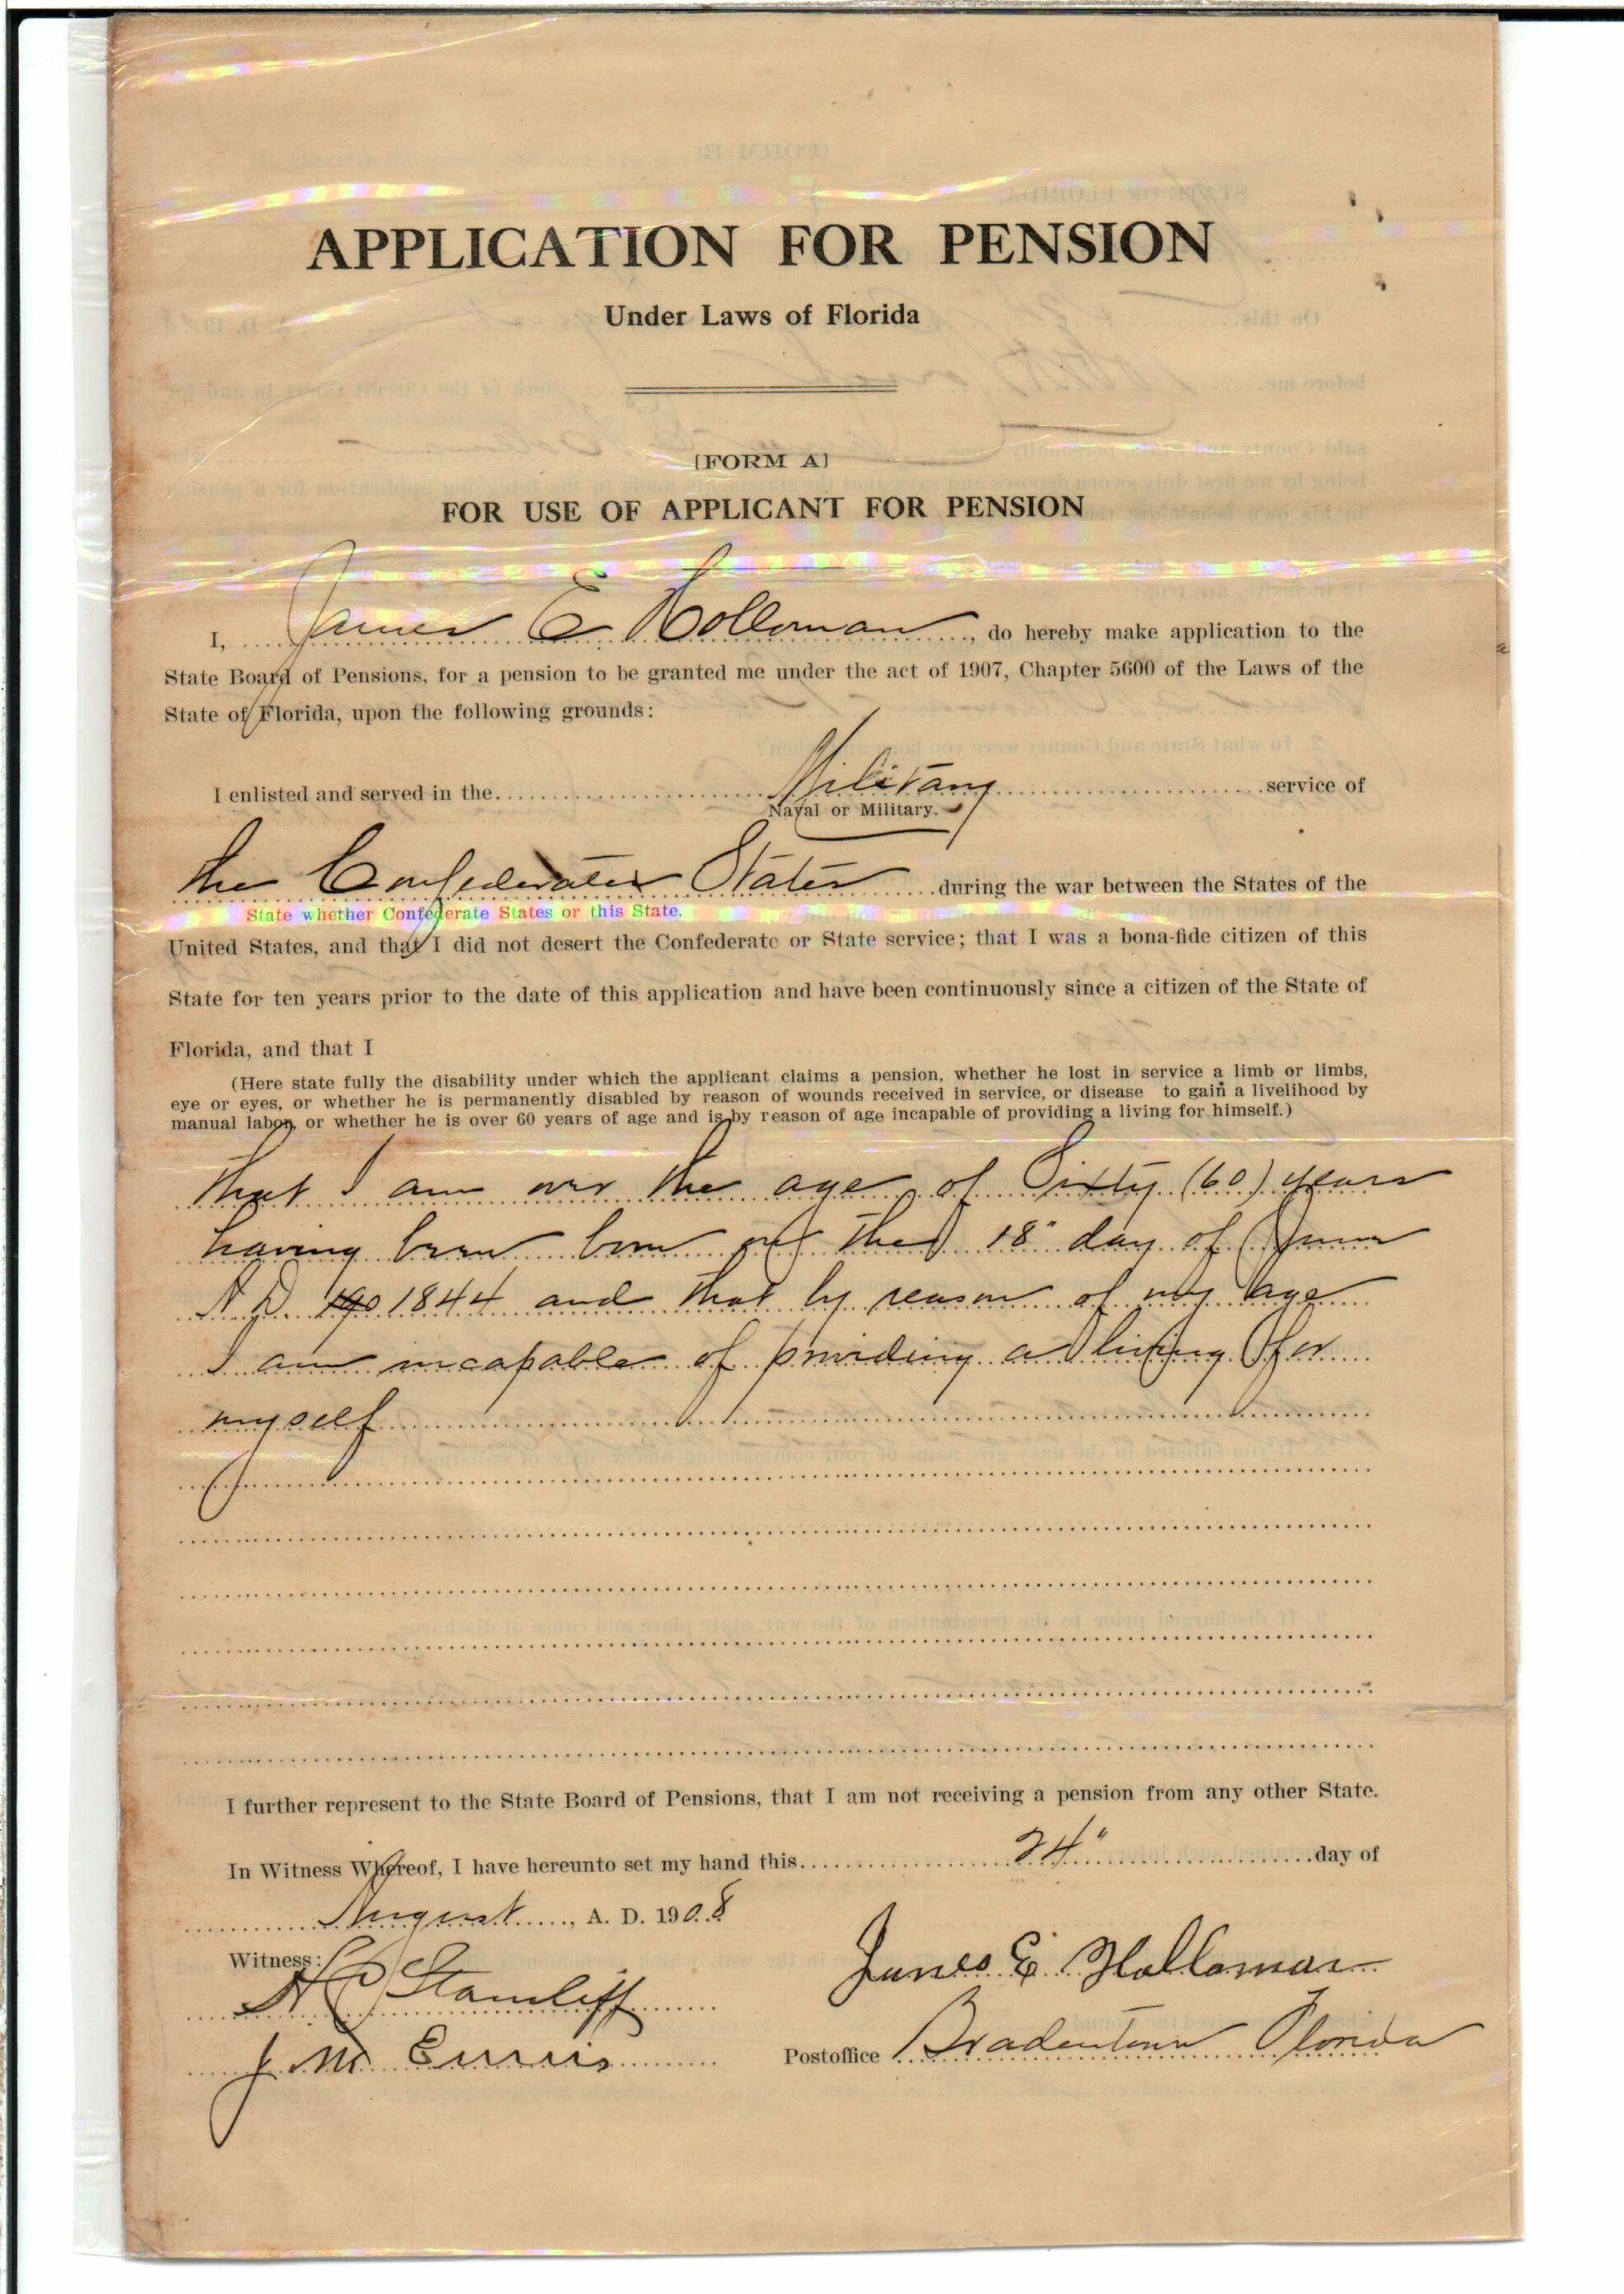 APPLICATION FOR PENSION
Under Laws of Florida
[FORM A]
FOR USE OF APPLICANT FOR PENSION
I, James E Holloman, do hereby make application to the
State Board of Pensions, for a pension to be granted me under the act of 1907, Chapter 5600 of the Laws of the
State of Florida, upon the following grounds:
I enlisted and served in the Military service of
Naval or Military.
the Confederate States during the war between the States of the
State whether Confederate States or this State.
United States, and that I did not desert the Confederate or State service; that I was a bona-fide citizen of this
State for ten years prior to the date of this application and have been continuously since a citizen of the State of
Florida, and that I
(Here state fully the disability under which the applicant claims a pension, whether he lost in service a limb or limbs,
eye or eyes, or whether he is permanently disabled by reason of wounds received in service, or disease to gain a livelihood by
manual labor, or whether he is over 60 years of age and is by reason of age incapable of providing a living for himself.)
that I am over the age of Sixty (60) years
having been born on the 18" day of June
A.D. 190 1844 and that by reason of my age
I am incapable of providing a living for
myself
I further represent to the State Board of Pensions, that I am not receiving a pension from any other State.
In Witness Whereof, I have hereunto set my hand this 24" day of
August, A. D. 1908
Witness:
James E. Holloman
J. M.
Postoffice Bradentown Florida